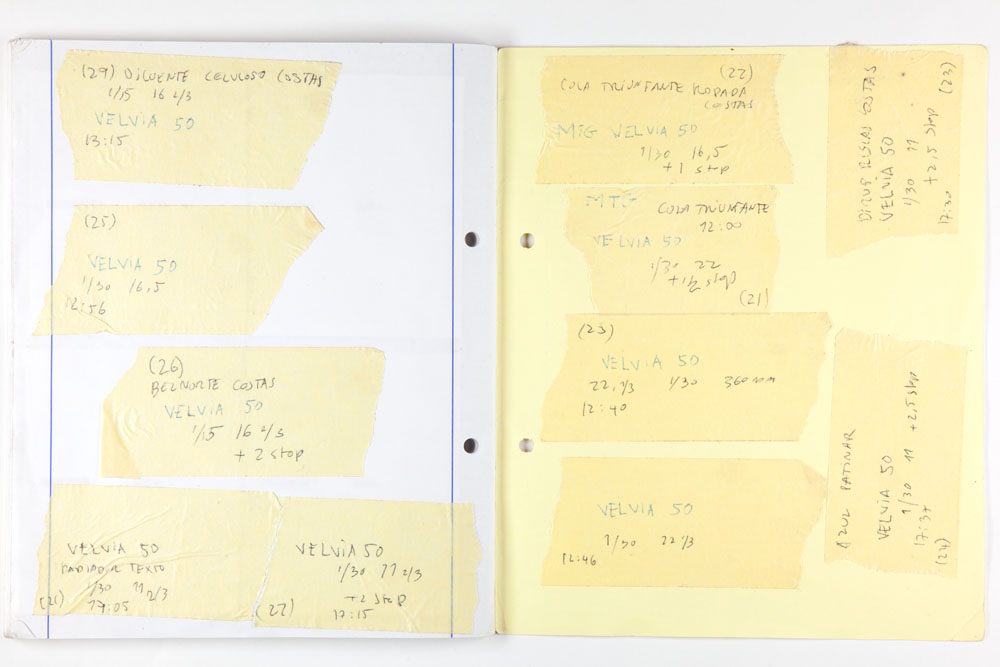 (29) DILUENTE CELULOSO COSTAS
1/15 16 2/3
VELVIA 50
13:15
(25)
VELVIA 50
1/30 16,5
12:56
(26)
BELNORTE COSTAS
VELVIA 50
1/15 16 2/3
+ 2 stop
VELVIA 50
RADIADOR TEXTO
1/30 11 2/3
(21) 17:05
VELVIA 50
1/30 11 2/3
+2 stop
(22) 17:15
(22)
COLA TRIUNFANTE RODADA
COSTAS
MTG VELVIA 50
1/30 16,5
+1 stop
MTG COLA TRIUNFANTE
12:00
VELVIA 50
1/30 22
(21)
(23)
VELVIA 50
22,1/3 1/30 360mm
12:40
VELVIA 50
1/30 22 1/3
12:46
(23)
COSTAS
VELVIA 50
1/30 11
+2,5 stop
17:30
AZUL PATINAR
VELVIA 50
1/30 11 +2,5 stop
17:37
(24)